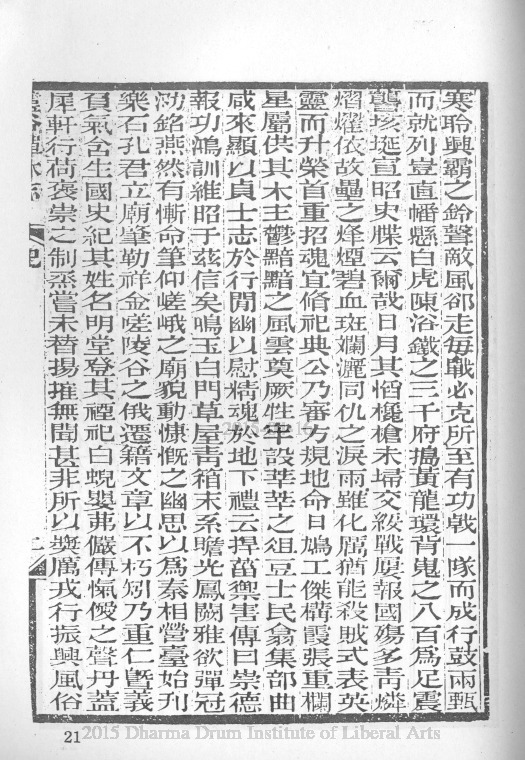 寒聆興霸之鈴聲敵風郤走每戰必克所至有功戟一隊而成行鼓兩甄
而就列豈直幡懸白虎陳浴鐵之三千府搗黃龍環背嵬之八百爲足震
讋垓埏宣昭史牒云爾哉日月其慆欃槍未埽交綏戰屢報國殤多靑燐
熠燿依故壘之烽煙碧血斑斕灑同仇之淚雨雖化厲猶能殺賊式表英
靈而升榮首重招魂宜脩祀典公乃審方規地命日鳩工傑構霞張重欄
星屬供其木主鬱黯黯之風雲奠厥牲牢設莘莘之俎豆士民翕集部曲
咸來顯以貞士志於行閒幽以慰精魂於地下禮云捍菑禦害傳曰崇德
報功鴻訓維昭于茲信矣鳴玉白門草屋靑箱末系瞻光鳳闕雅欲彈冠
泐銘燕然有慚命筆仰嵯峨之廟貌動慷慨之幽思以爲秦相營臺始刋
樂石孔君立廟肇勒祥金嗟陵谷之俄遷籍文章以不朽矧乃重仁曁義
負氣含生國史紀其姓名明堂登其禋祀白蜺嬰茀儼傳愾僾之聲丹蓋
犀軒行荷褒崇之制蒸嘗未替揚摧無聞甚非所以奬厲戎行振興風俗
靈谷禪林志
記
21
2015 Dharma Drum Institute of Liberal Arts